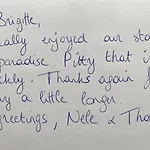 Brigitte,
ally enjoyed our sta
paradise. Pitty that i
kly. Thanks again f
y a little longer.
reetings, Nele & Tho